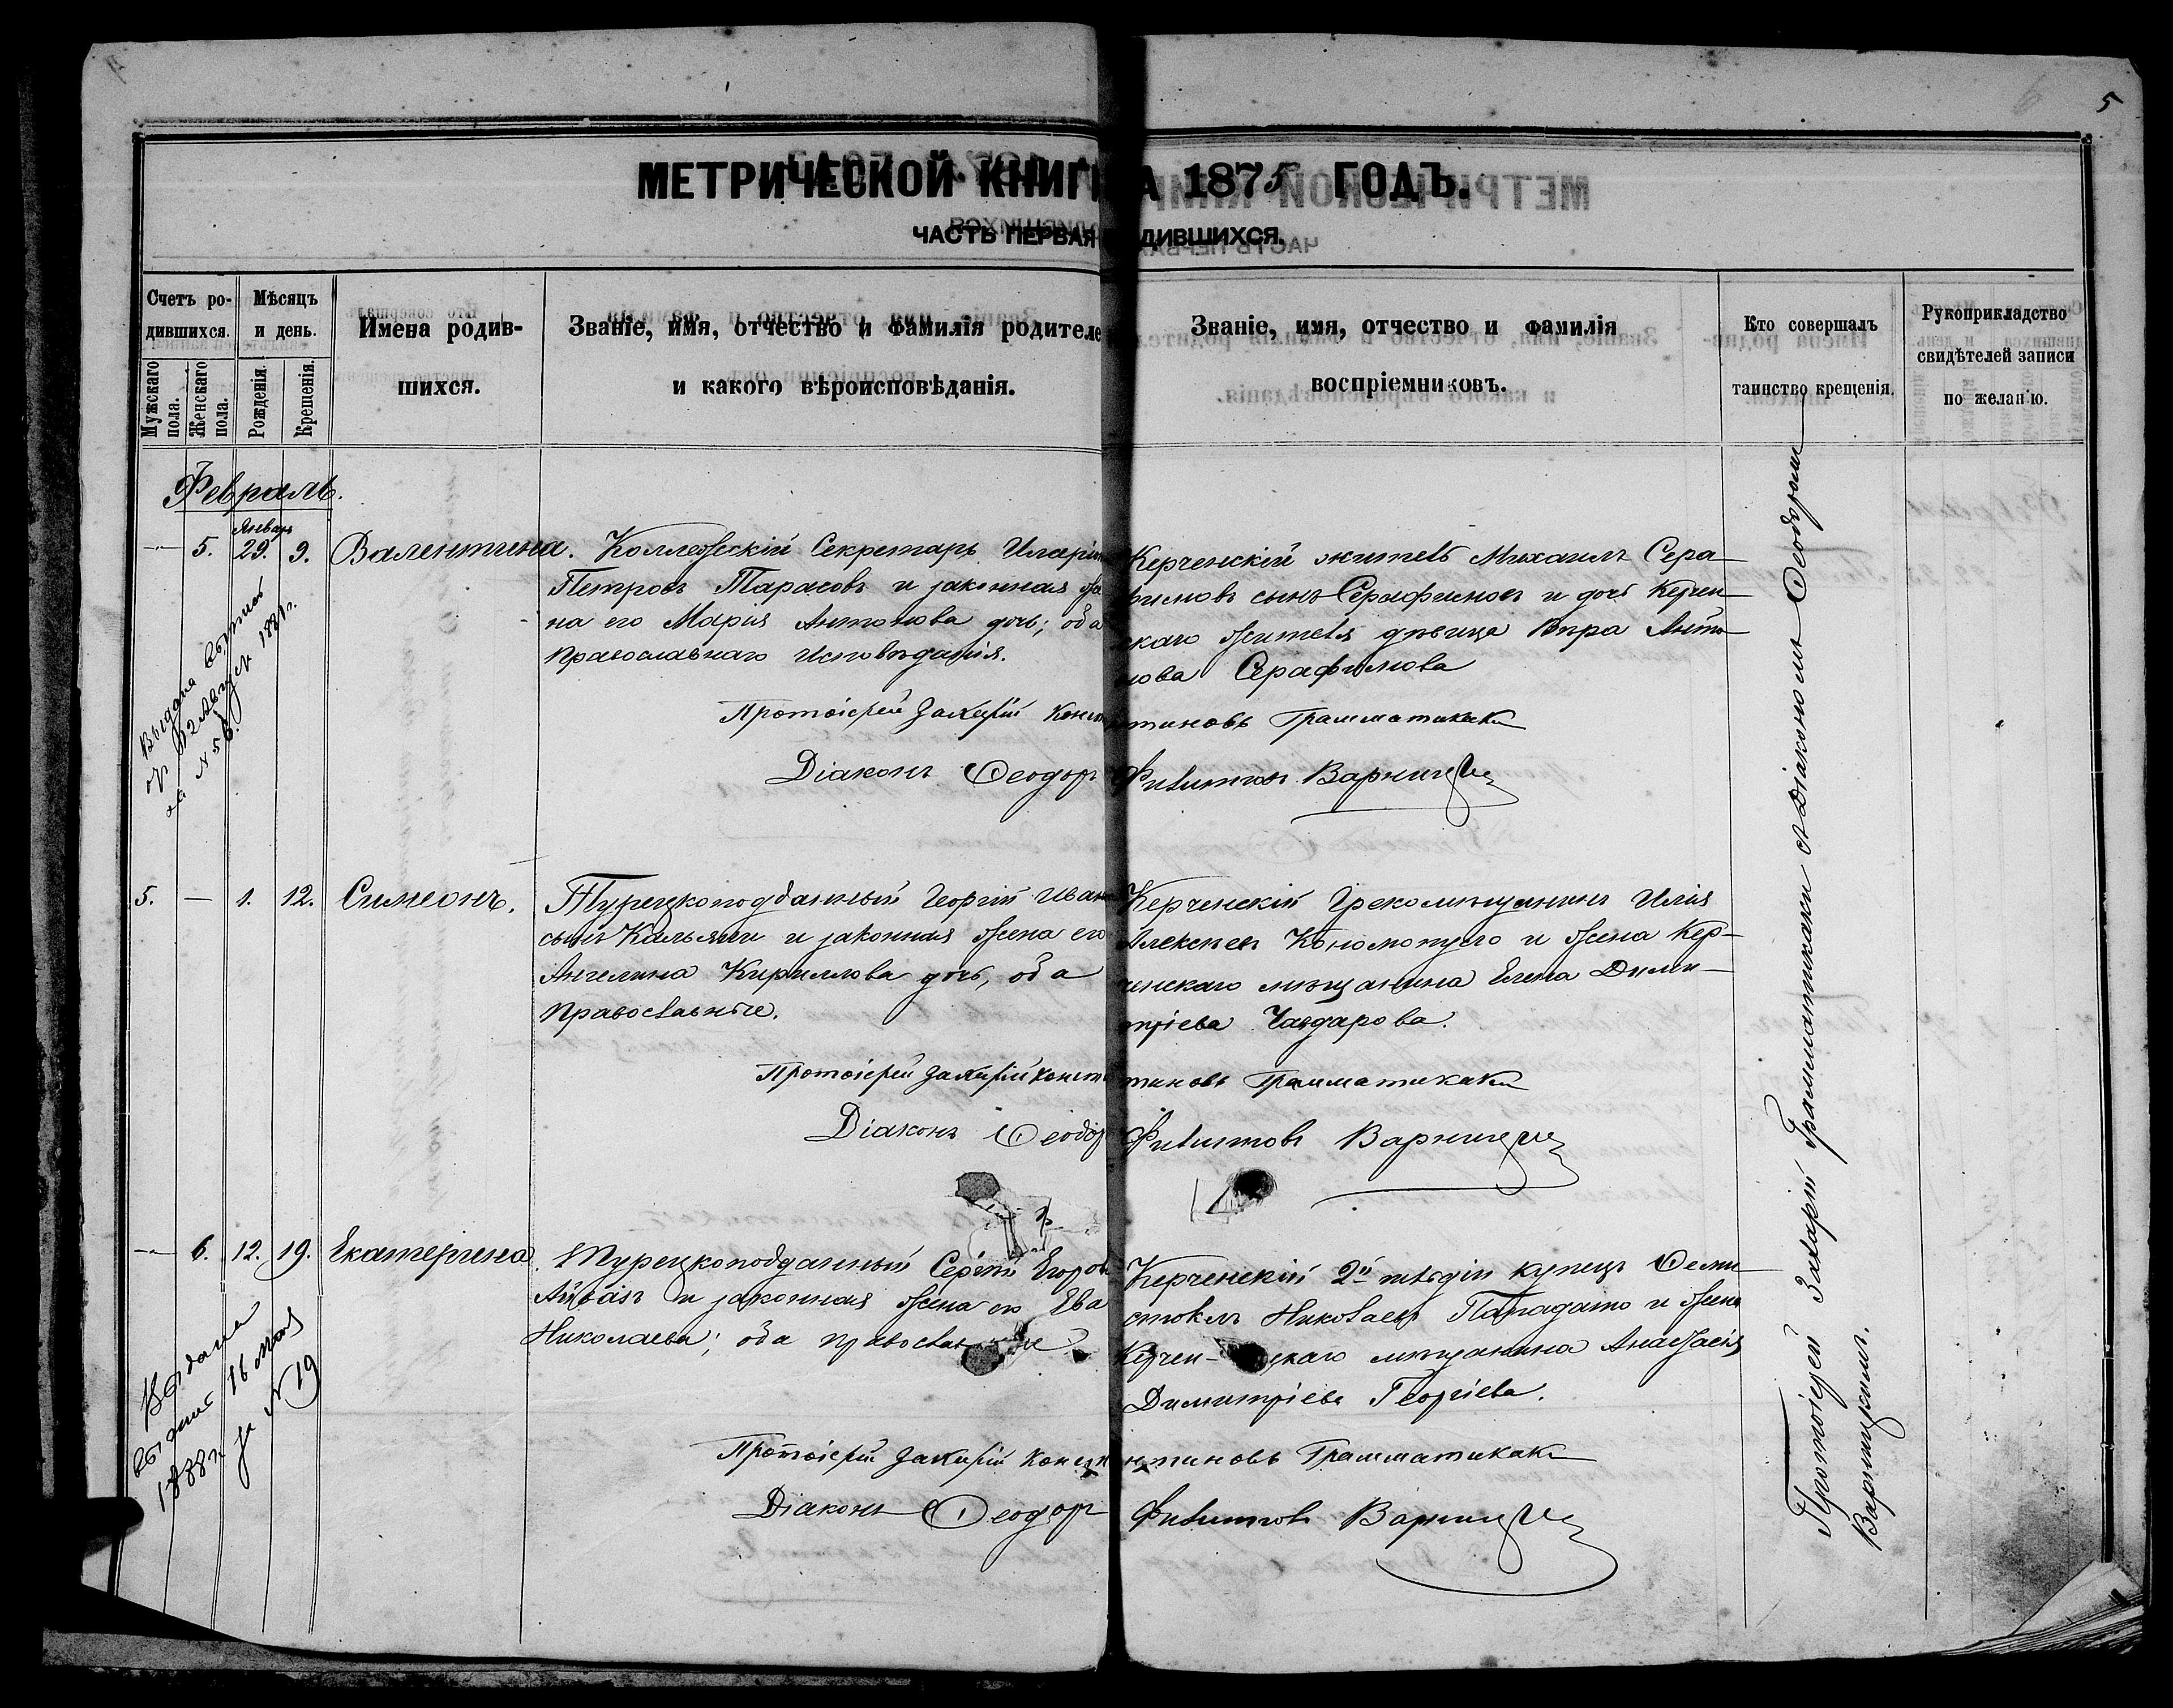 5
МЕТРИЧЕСКОЙ КНИГИ НА 1875 ГОДЪ.
ЧАСТЬ ПЕРВАЯ ДИВШИХСЯ.
Счетъ ро-
дившихся.
Мужскаго пола.
Женскаго пола.
Мѣсяцъ
и день.
Рожденія.
Крещенія.
Имена родив-
шихся.
Званіе, имя, отчество и фамилія родителе
и какого вѣроисповѣданія.
Званіе, имя, отчество и фамилія
воспріемниковъ.
Кто совершалъ
таинство крещенія.
Рукоприкладство
свидѣтелей записи
по желанію.
Февраль.
Январь
— 5. 29. 9. Валентина.
Коллежскій Секретарь Иларіо
Петровъ Тарасовъ и законная же
на его Марія Антонова дочь; оба
Православнаго Исповѣданія.
Керченскій житель Михаилъ Сера
фимовъ сынъ Серафимовъ и дочь Керчен
скаго жителя дѣвица Вѣра Анто
нова Серафимова
Выдана выпись
12 Августа 1881 г.
за № 56.
Протоіерей Захарій Константиновъ Грамматикаки
Діаконъ Ѳеодоръ Филиповъ Варницкій
5. — 1. 12. Симеонъ.
Турецкоподданный Георгій Иван
сынъ Кальяни и законная жена его
Ангелина Кириллова дочь, оба
Православные.
Керченскій Грекомѣщанинъ Илія
Алексѣевъ Кономопуло и жена Кер-
ченскаго мѣщанина Елена Дими-
тріева Чавдарова.
Протоіерей Захарій Константиновъ Грамматикаки
Діаконъ Ѳеодоръ Филиповъ Варницкій
— 6. 12. 19. Екатерина.
Турецкоподданный Сергій Егоров
Айвазъ и законная жена его Ева
Николаева; оба православные
Керченскій 2й гильдіи купецъ Ѳеми
стоклъ Николаевъ Пападато и жена
Керчен-скаго мѣщанина Анастасія
Димитріева Георгіева.
Выдана
выпись 16 Мая
1888 г. за № 19
Протоіерей Захарій Константиновъ Грамматикаки
Діаконъ Ѳеодоръ Филиповъ Варницкій
Протоіерей Захарій Грамматикаки съ Діакономъ Ѳеодоромъ
Варницкимъ.